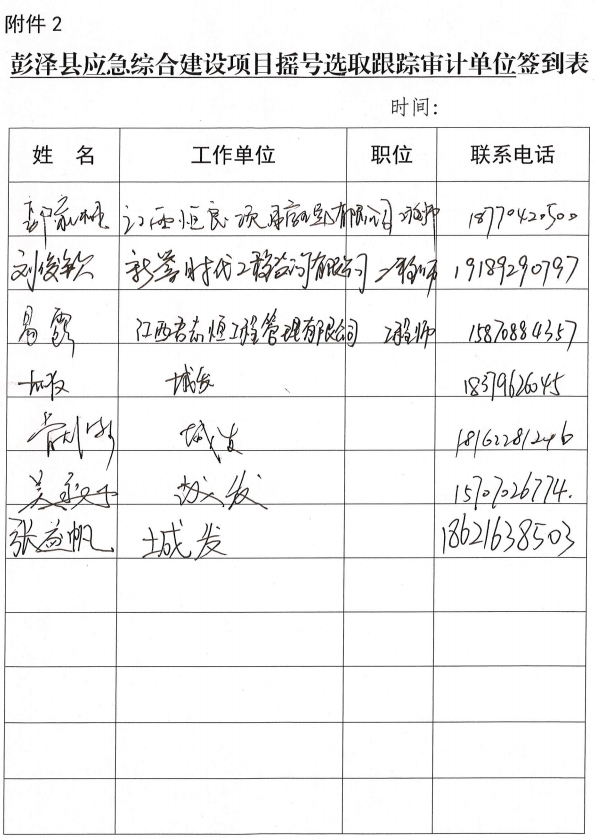 附件2
彭泽县应急综合建设项目摇号选取跟踪审计单位签到表
时间：
姓 名 工作单位 职位 联系电话
江西恒良项目管理有限公司 工程师 18770420500
刘俊钦 新誉时代工程咨询有限公司 工程师 19189290797
易露 江西吉赤恒工程管理有限公司 工程师 15870884357
城发 18379626045
城发 18162281246
城发 15707026774.
张益帆 城发 18621638503